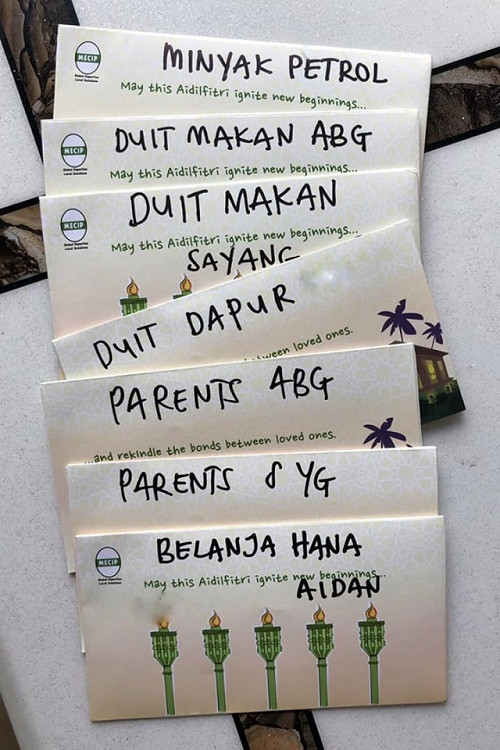 MECIP
Global Expertise
Local Solutions
MINYAK PETROL
May this Aidilfitri ignite new beginnings...
MECIP
Global Expertise
Local Solutions
DUIT MAKAN ABG
May this Aidilfitri ignite new beginnings...
MECIP
Global Expertise
Local Solutions
DUIT MAKAN
May this Aidilfitri ignite new beginnings...
SAYANG
DUIT DAPUR
between loved ones.
PARENTS ABG
...and rekindle the bonds between loved ones.
PARENTS SYG
MECIP
Global Expertise
Local Solutions
BELANJA HANA
May this Aidilfitri ignite new beginnings...
AIDAN